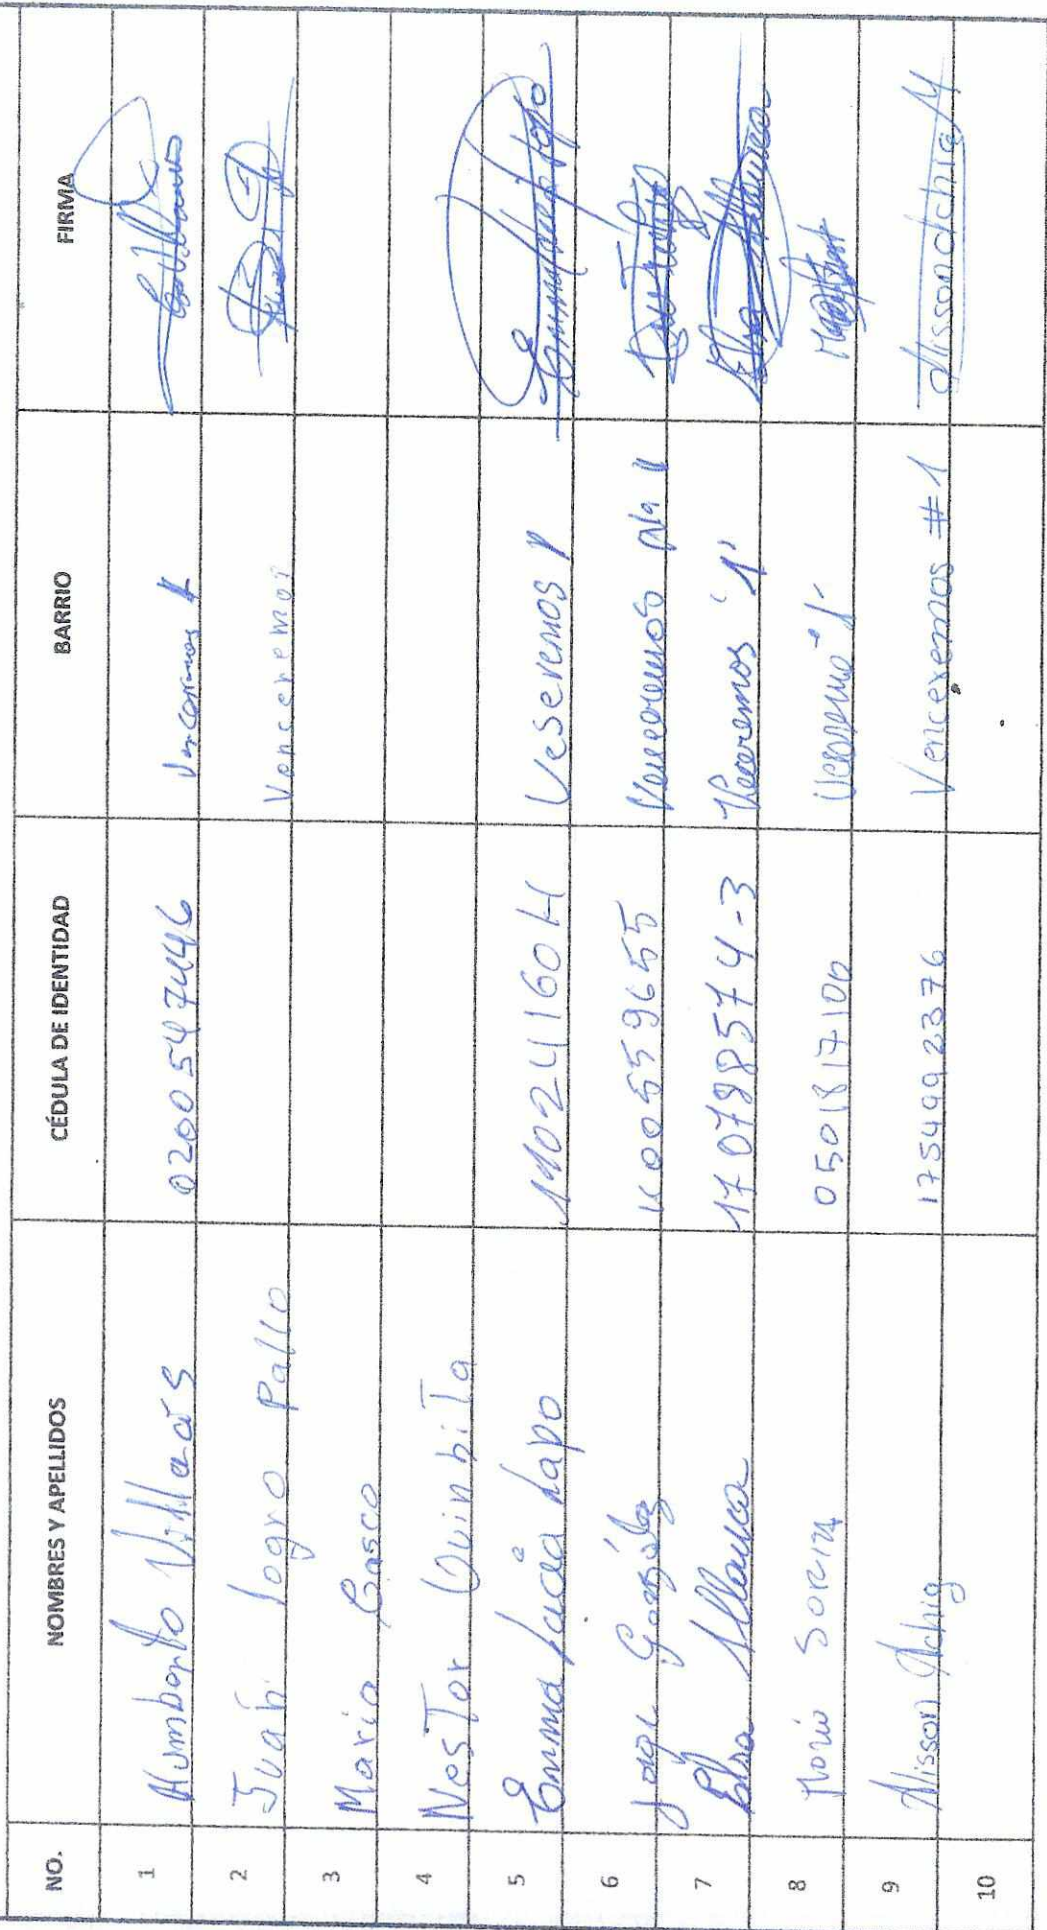 NO. NOMBRES Y APELLIDOS CÉDULA DE IDENTIDAD BARRIO FIRMA
1 Humberto 0200547446
2 Juan Togro Pallo Vonseremos
3 Maria Casco
4 Nestor Quinbita
5 Emma Lucía Lapo Veseremos
6 Jorge González 1600559655 Venceremos
7 Elsa Allauca 170788574-3 Veceremos "1"
8 Soria 0501817100
9 Alisson Achig 1754992376 Venceremos #1 Alisson Achig M
10